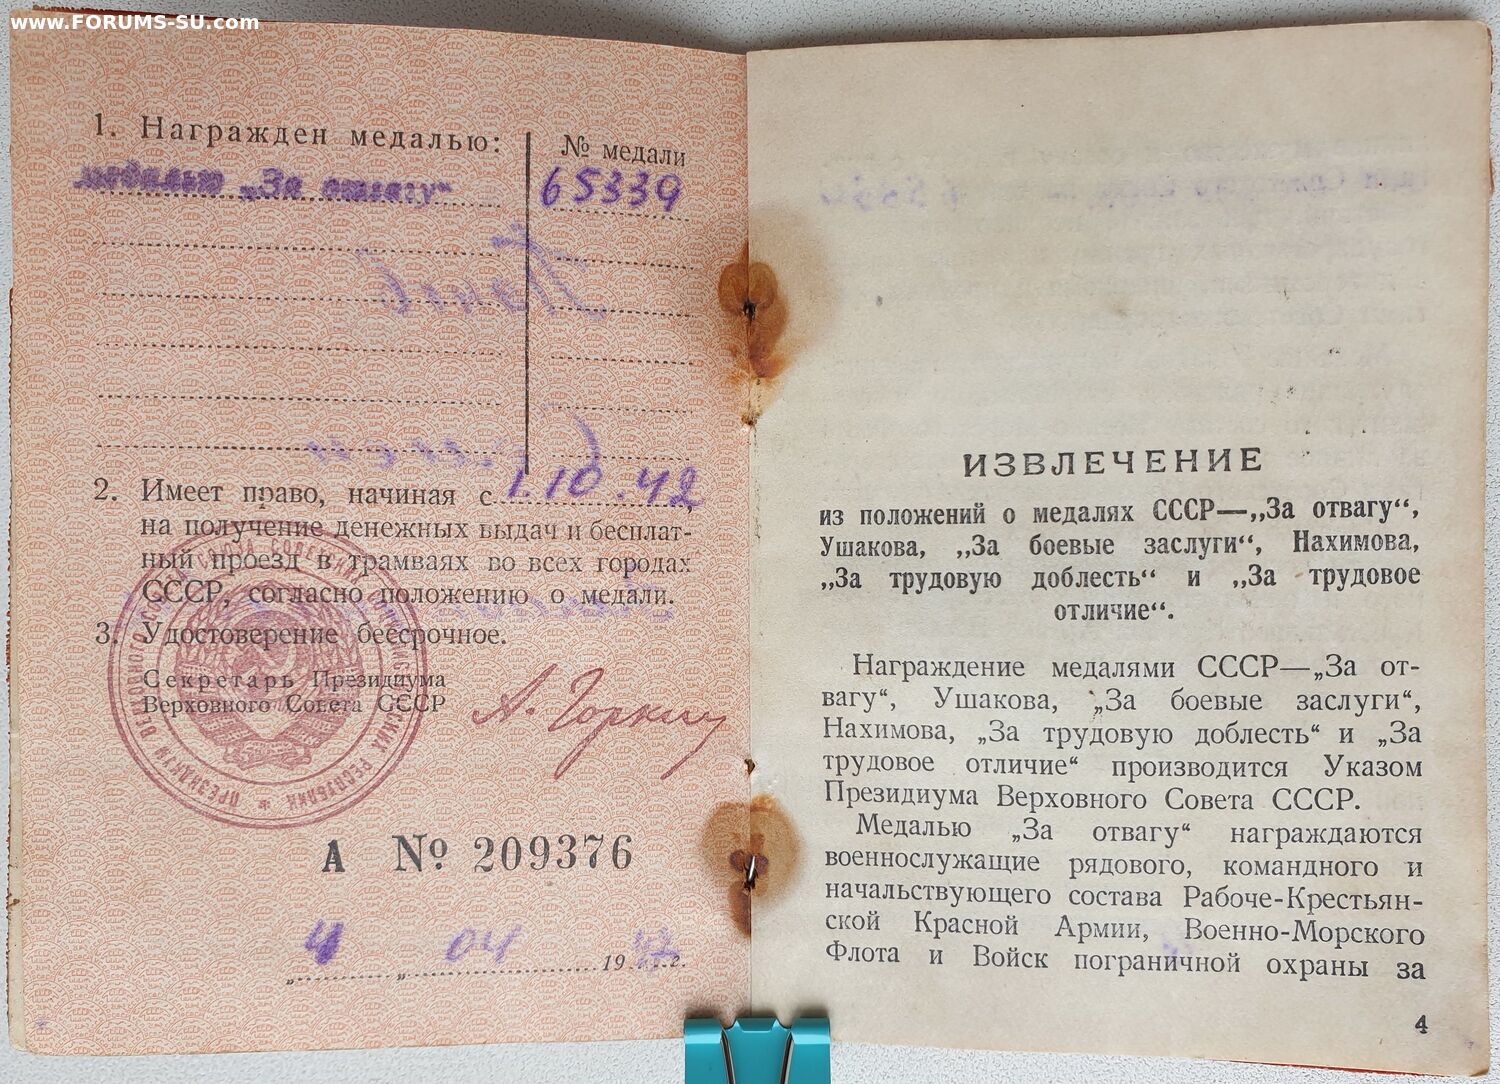 www.FORUMS-SU.com
1. Награжден медалью:
№ медали
медалью „За отвагу“
65339
2. Имеет право, начиная с 1.10.42,
на получение денежных выдач и бесплат-
ный проезд в трамваях во всех городах
СССР, согласно положению о медали.
3. Удостоверение бессрочное.
Секретарь Президиума
Верховного Совета СССР
А. Горкин
А № 209376
„4“ 04 1947 г.
ИЗВЛЕЧЕНИЕ
из положений о медалях СССР—„За отвагу“,
Ушакова, „За боевые заслуги“, Нахимова,
„За трудовую доблесть“ и „За трудовое
отличие“.
Награждение медалями СССР—„За от-
вагу“, Ушакова, „За боевые заслуги“,
Нахимова, „За трудовую доблесть“ и „За
трудовое отличие“ производится Указом
Президиума Верховного Совета СССР.
Медалью „За отвагу“ награждаются
военнослужащие рядового, командного и
начальствующего состава Рабоче-Крестьян-
ской Красной Армии, Военно-Морского
Флота и Войск пограничной охраны за
4